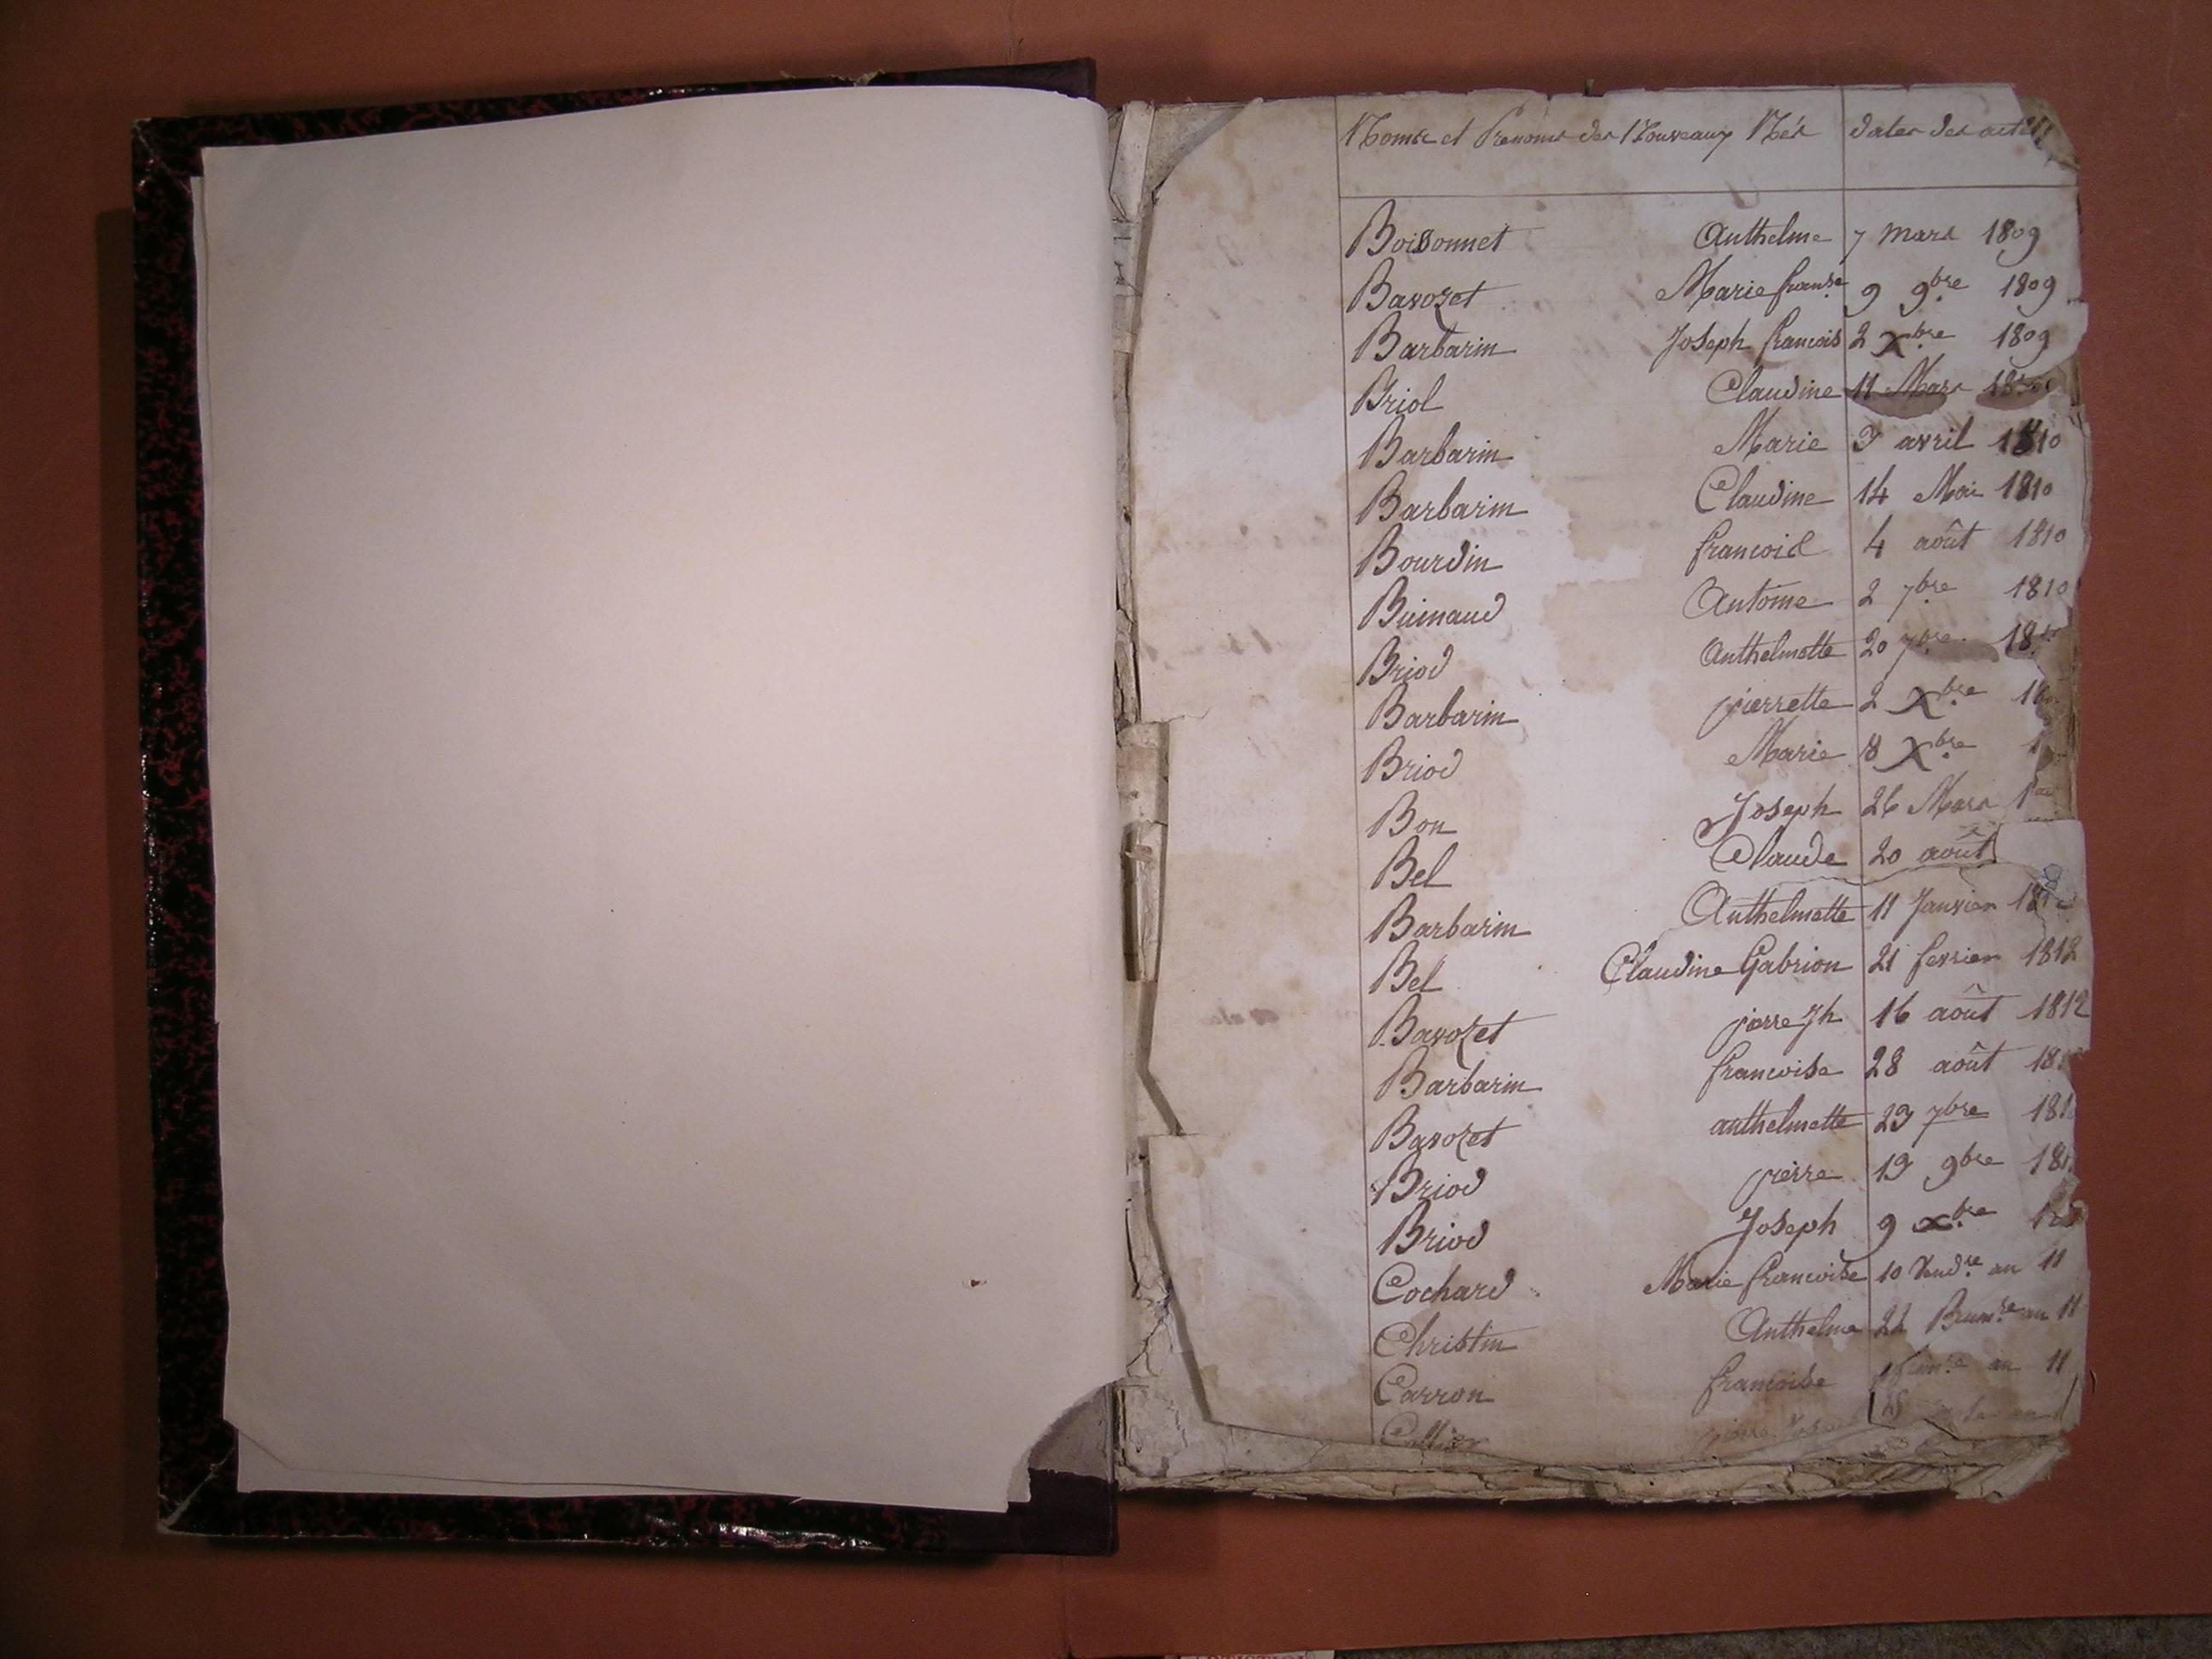 Noms et Prenoms des Nouveaux Nés dates des actes
Boissonnet Anthelme 7 Mars 1809
Bavozet Marie franse 9 9bre 1809
Barbarin Joseph francois 2 Xbre 1809
Briol Claudine 11 Mars
Barbarin Marie 3 avril 1810
Barbarin Claudine 14 Mai 1810
Bourdin francois 4 août 1810
Buinaud Antoine 2 7bre 1810
Briod Anthelmette 20 7bre
Barbarin pierrette 2 Xbre
Briod Marie 8 Xbre
Bon Joseph 26 Mars
Bel Claude 20 août
Barbarin Anthelmette 11 Janvier
Bel Claudine Gabrion 21 fevrier 1812
Bavozet pierre Jh 16 août 1812
Barbarin francoise 28 août
Bavozet anthelmette 23 7bre
Briod pierre 19 9bre
Briod Joseph 9 xbre
Cochard Marie francoise 10 Vendre an 11
Christin Anthelme 22 Brumre an 11
Carron francoise an 11